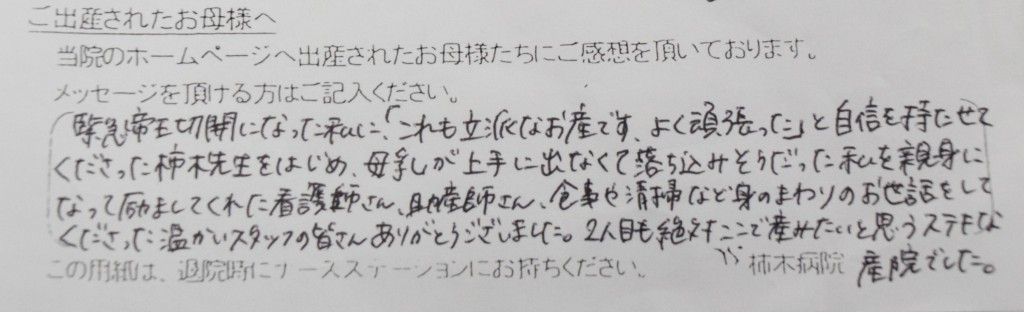 ご出産されたお母様へ
当院のホームページへ出産されたお母様たちにご感想を頂いております。
メッセージを頂ける方はご記入ください。
緊急帝王切開になった私に、「これも立派なお産です、よく頑張った」と自信を持たせて
くださった柿木先生をはじめ、母乳が上手に出なくて落ち込みそうだった私を親身に
なって励ましてくれた看護師さん、助産師さん、食事や清掃など身のまわりのお世話をして
くださった温かいスタッフの皆さんありがとうございました。2人目も絶対ここで産みたいと思うステキな
産院でした。
この用紙は、退院時にナースステーションにお持ちください。
柿木病院